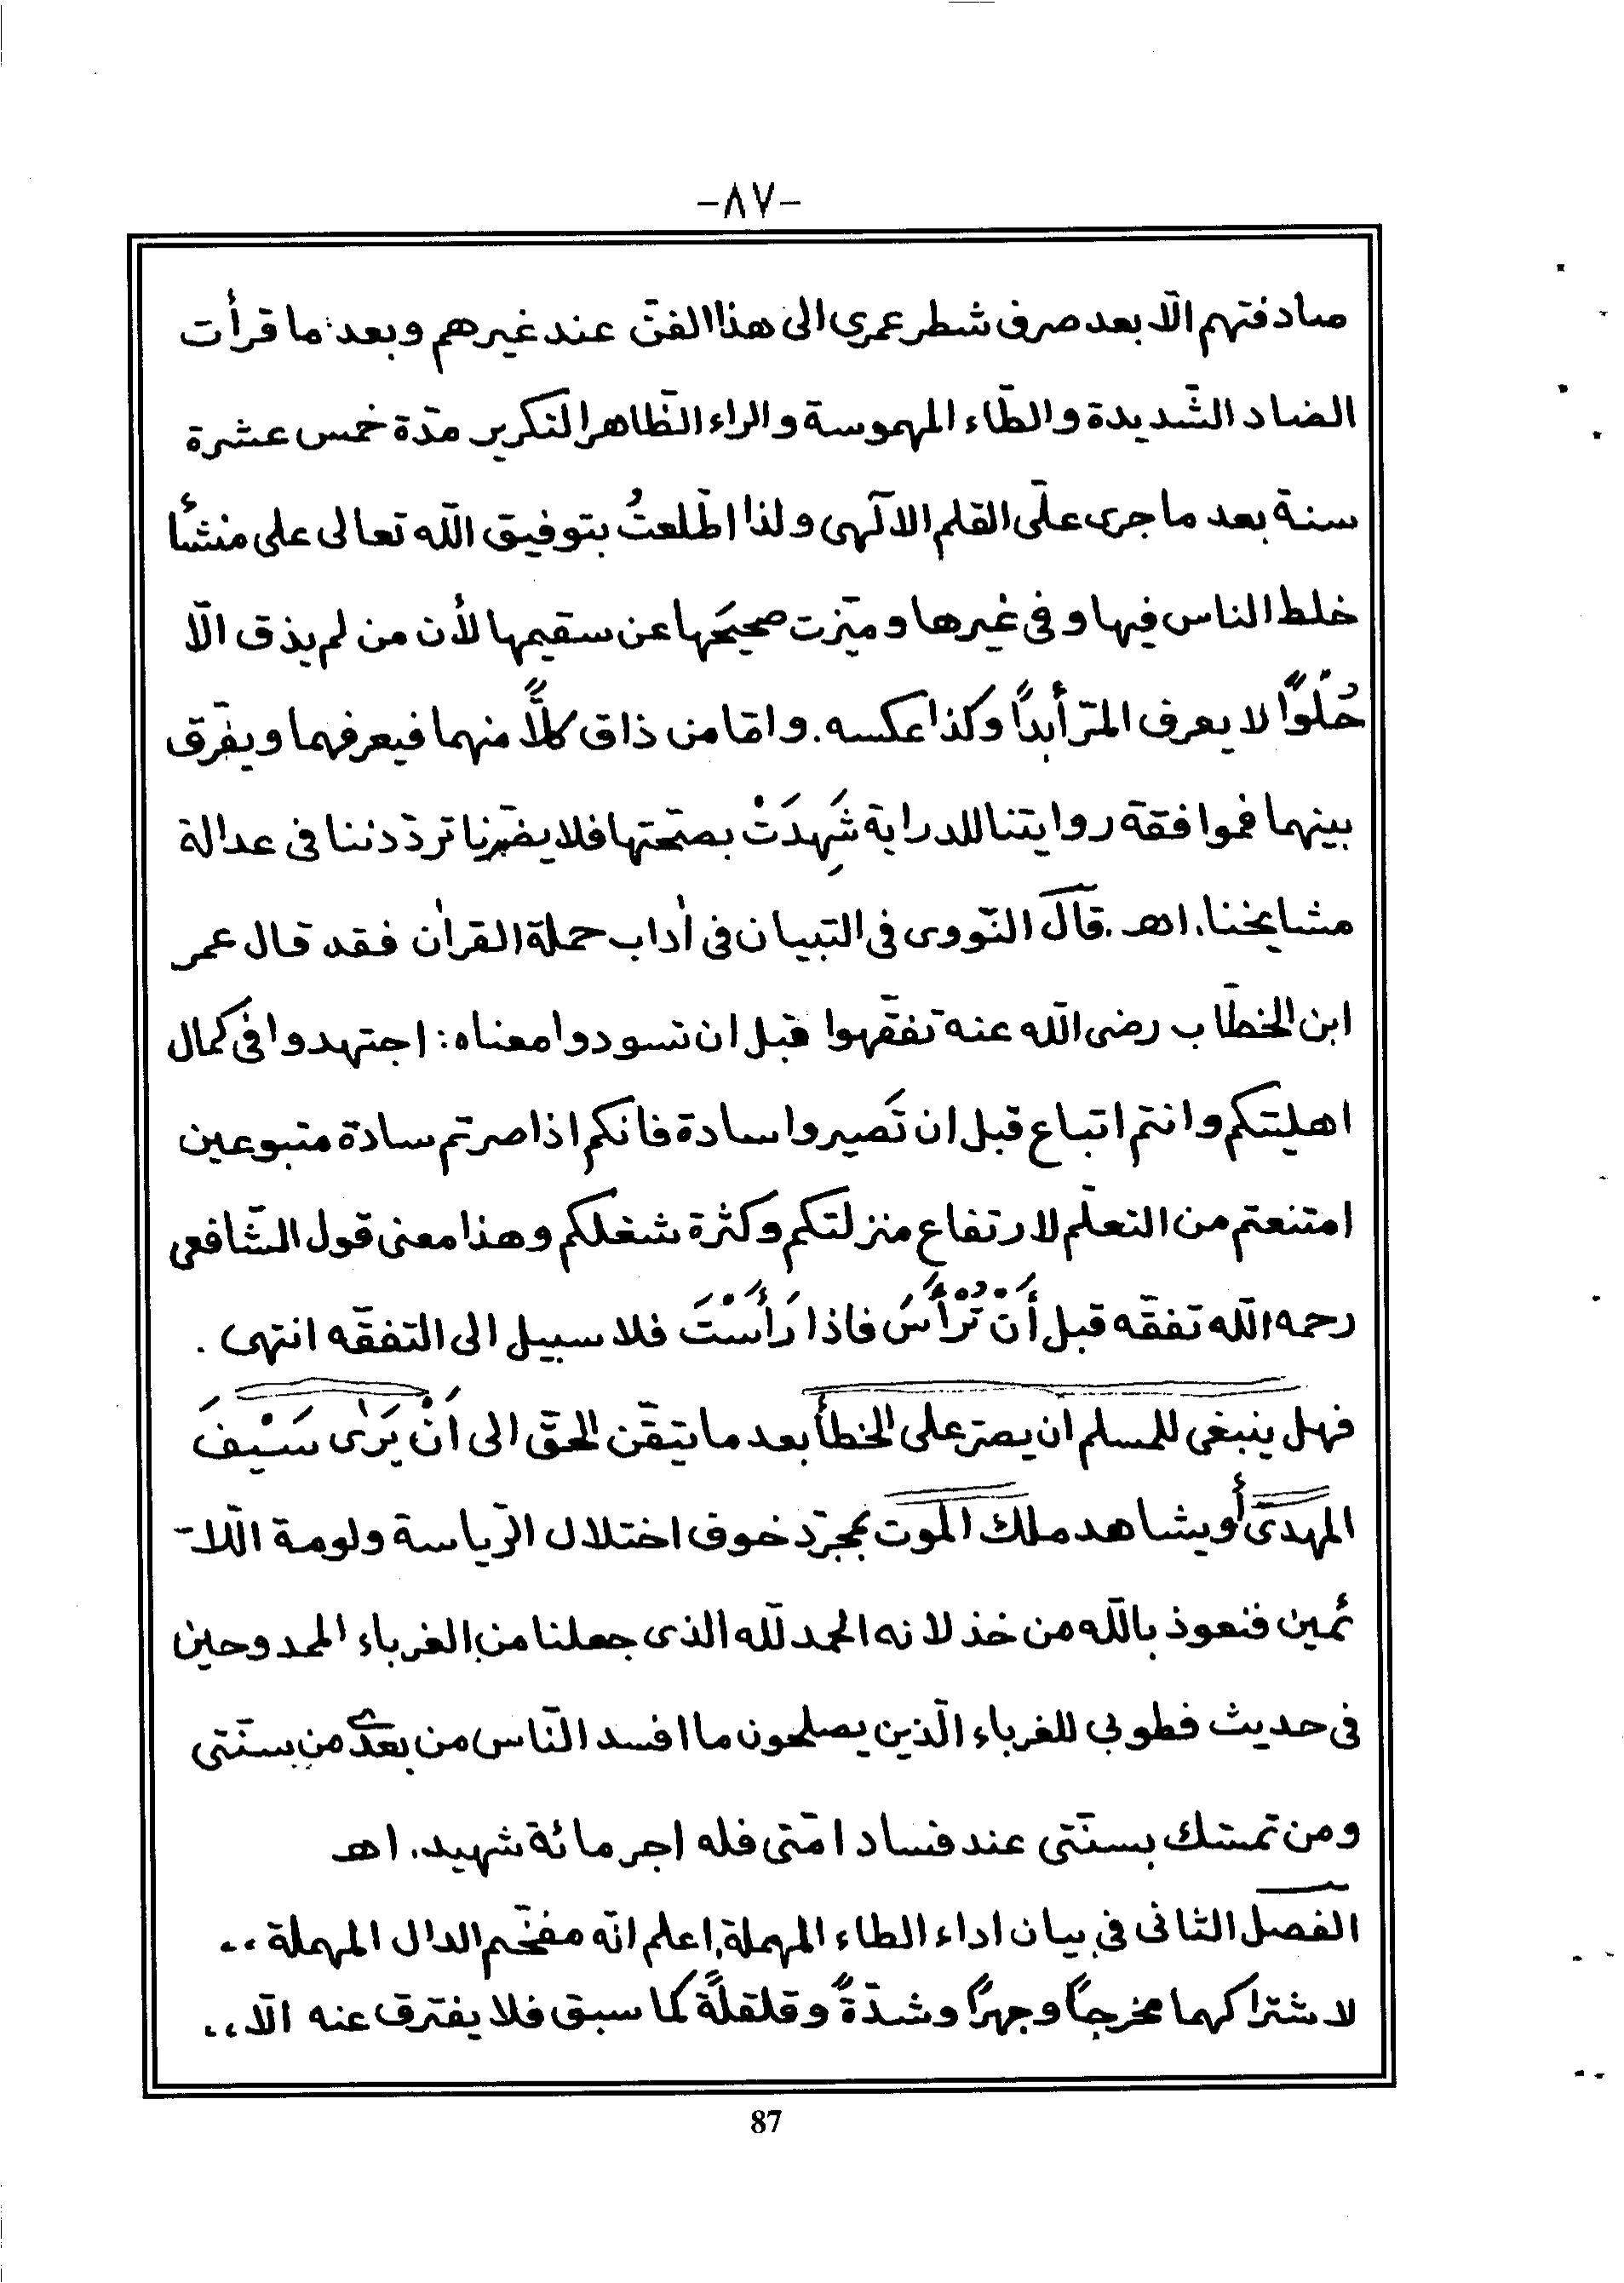 -٨٧-
صادفتهم الّا بعد صرف شطر عمرى الى هذا الفنّ عند غيرهم وبعد ما قرأت
الضاد الشّديدة والطّاء المهموسة والراء الظّاهر التكرير مدّة خمس عشرة
سنة بعد ما جرى علَى القلم الالٓهى ولذا اطّلعتُ بتوفيق اللّه تعالى على منشأ
خلط الناس فيها وفى غيرها وميّزت صحيحَها عن سقيمها لأن من لم يذق الّا
حُلْوًا لا يعرف المرّ أبدًا وكذا عكسه. وامّا من ذاق كلًّا منهما فيعرفهما ويفرّق
بينهما فموافقة روايتنا للدراية شَهِدَتْ بصحّتها فلا يضرّنا تردّدنا فى عدالة
مشايخنا. اهـ. قال النّووى فى التبيان فى اٰداب حملة القراٰن فقد قال عمر
ابن الخطّاب رضى اللّه عنه تفقّهوا قبل ان تسودوا معناه: اجتهدوا فى كمال
اهليّتكم وانتم اتباع قبل ان تَصيروا سادة فانكم اذا صرتم سادة متبوعين
امتنعتم من التعلّم لارتفاع منزلتكم وكثرة شغلكم وهذا معنى قول الشّافعى
رحمه اللّه تفقّه قبل أَنْ تُرْأَسَ فاذا رَأَسْتَ فلا سبيل الى التفقّه انتهى .
فهل ينبغى للمسلم ان يصرّ على الخطأ بعد ما تيقّن الحقّ الى اَنْ يَرٰى سَيْفَ
المهدىّ أو يشاهد ملك الموت بمجرّد خوف اختلال الرّياسة ولومة اللّا-
ئمين فنعوذ باللّه من خذلانه الحمد للّه الذى جعلنا من الغرباء الممدوحين
فى حديث فطوبى للغرباء الّذين يصلحون ما افسد النّاس من بعدى من سنّتى
ومن تمسّك بسنّتى عند فساد امّتى فله اجر مائة شهيد. اهـ
الفصل الثانى فى بيان اداء الطاء المهملة, اعلم انّه مفخّم الدال المهملة ،،
لاشتراكهما مخرجًا وجهرًا وشدّةً وقلقلةً كما سبق فلا يفترق عنه الّا ،،
87